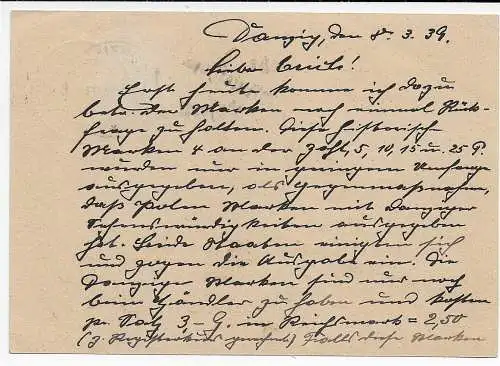 Danzig, den 8. 3. 39.
Liebe
Erst heute komme ich dazu
betr. der Marken noch einmal Rück-
frage zu halten. Diese historische
Marken 4 an der Zahl, 5, 10, 15 u. 25 P.
wurden nur in geringem Umfange
ausgegeben, als Gegenmaßnahme,
daß Polen Marken mit Danziger
Sehenswürdigkeiten ausgegeben
hat. Beide Staaten einigten sich
und zogen die Ausgabe ein. Die
Danziger Marken sind nur noch
beim Händler zu haben und kosten
pr. Satz 3,- G. in Reichsmark = 2,50
(z. Registerkurs gerechnet) Falls diese Marken